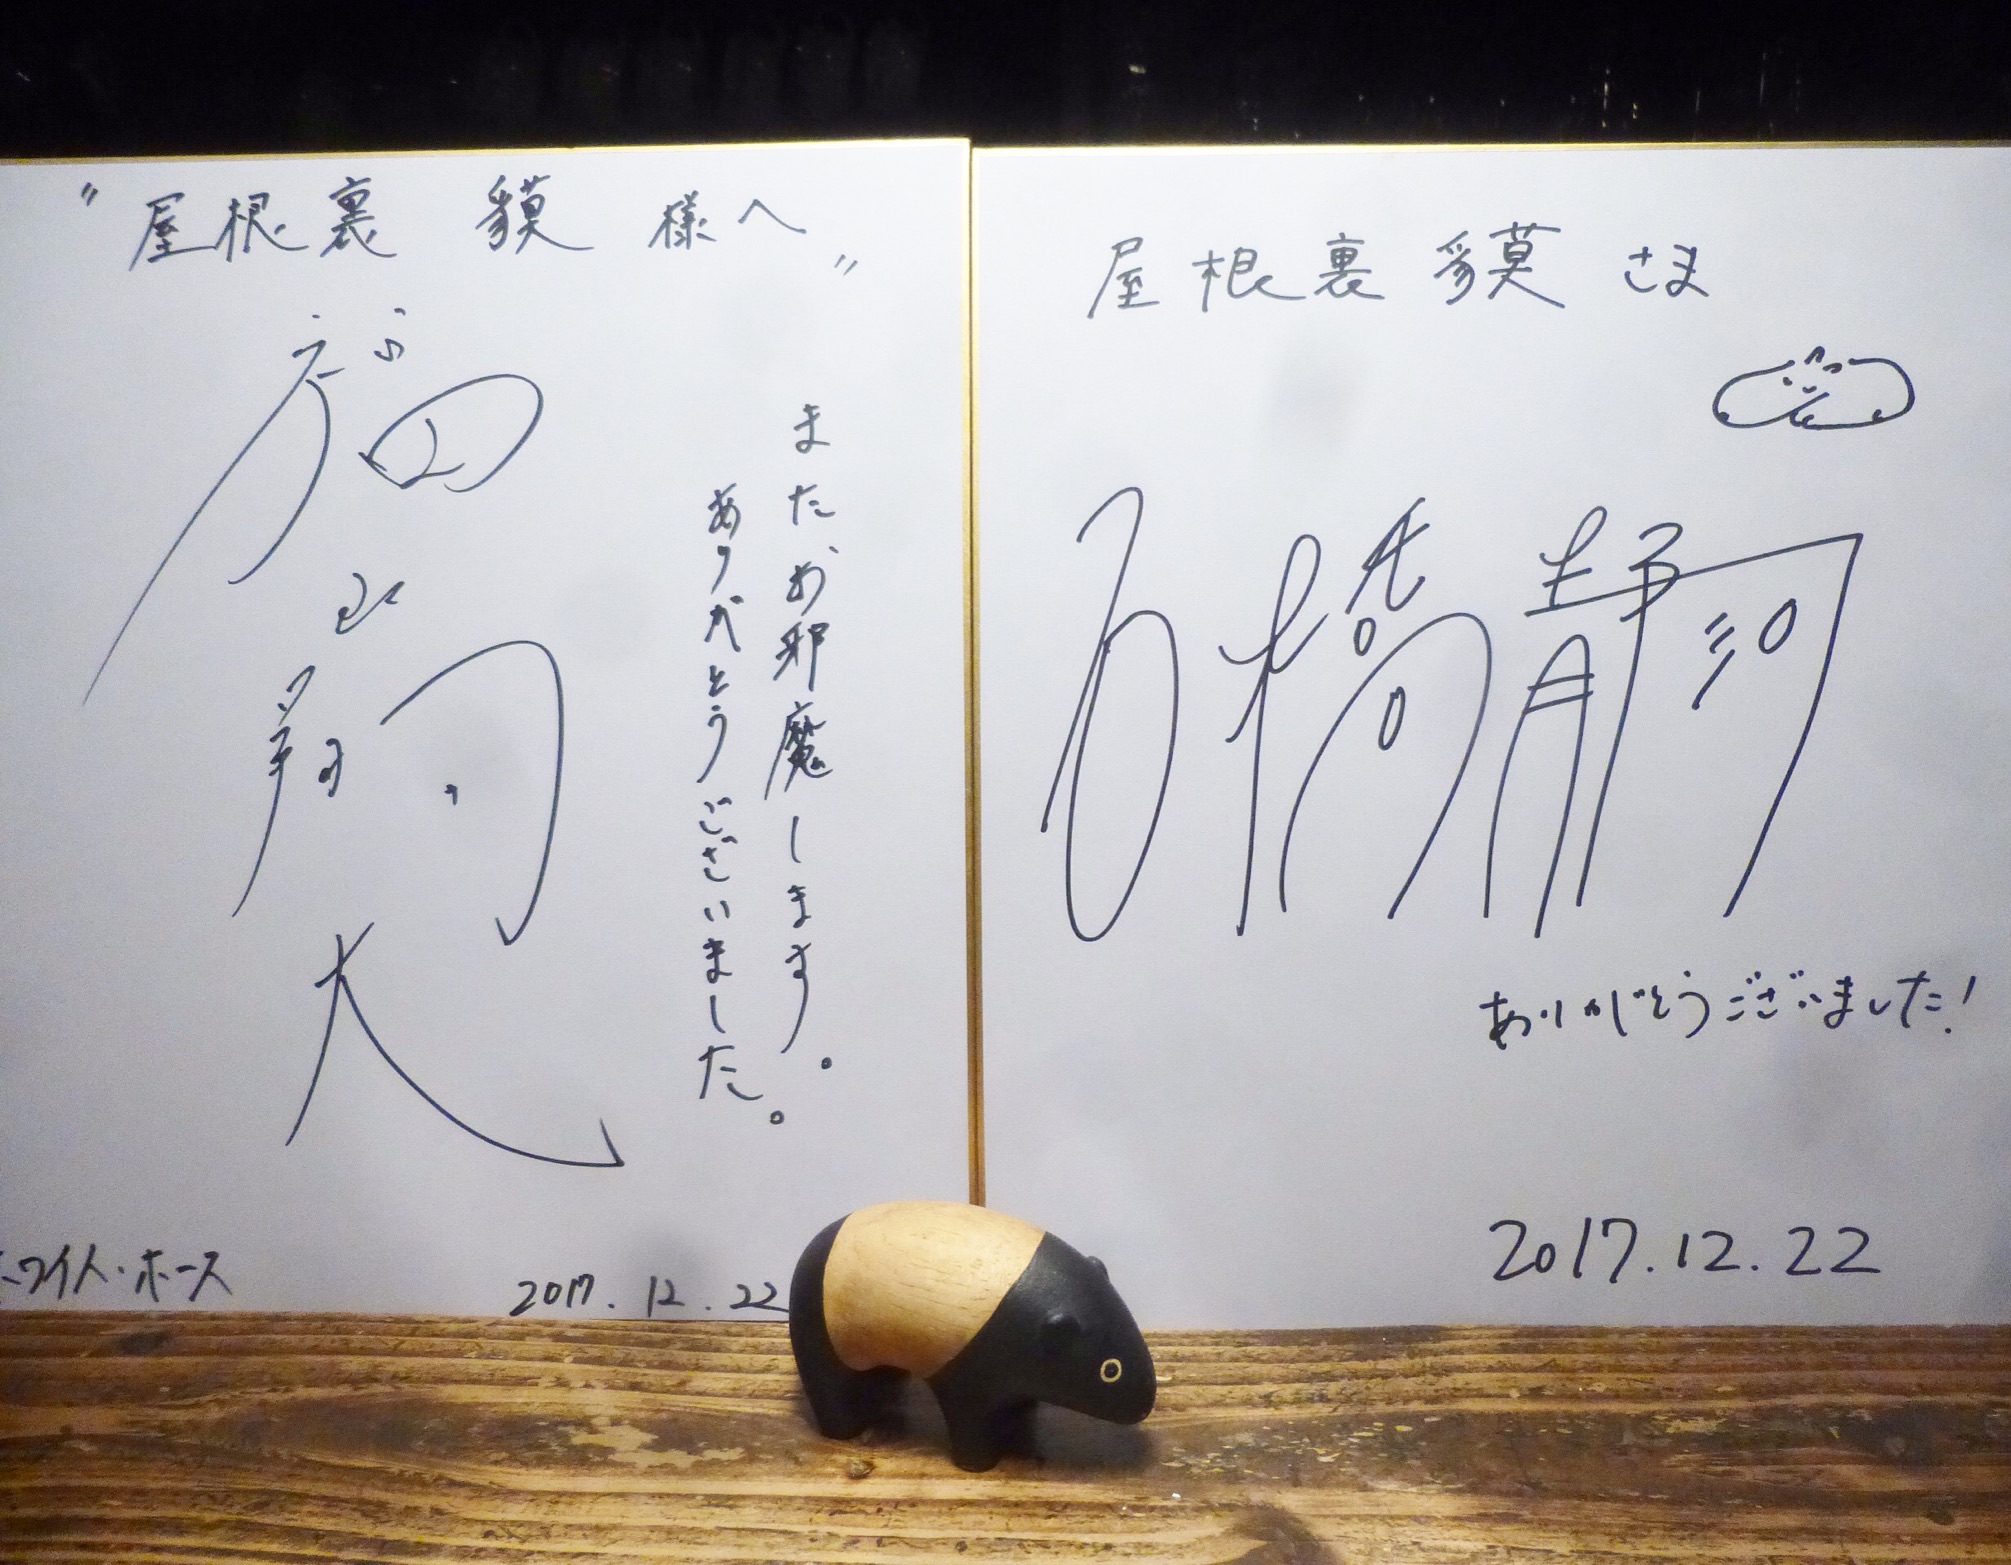 〝屋根裏 貘 様へ〟
また、お邪魔します。
ありがとうございました。
ホワイト・ホース
2017.12.22
屋根裏 貘 さま
石橋静河
ありがとうございました!
2017.12.22